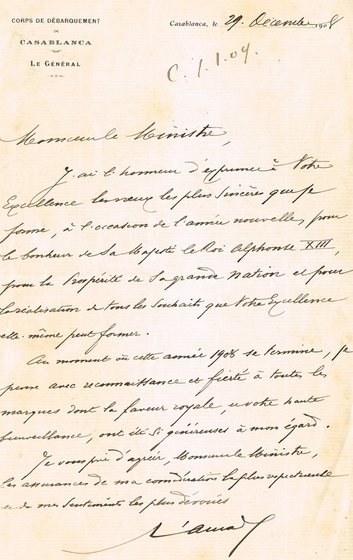 CORPS DE DÉBARQUEMENT
DE
CASABLANCA
LE GÉNÉRAL
Casablanca, le 29 Décembre 1908
C. 1.1.09.
Monsieur le Ministre,
J'ai l'honneur d'exprimer à Votre
Excellence les vœux les plus sincères que je
forme, à l'occasion de l'année nouvelle, pour
le bonheur de Sa Majesté le Roi Alphonse XIII,
pour la Prospérité de Sa grande Nation et pour
la réalisation de tous les Souhaits que Votre Excellence
elle-même peut former.
Au moment où cette année 1908 se termine, je
pense avec reconnaissance et fierté à toutes les
marques dont la faveur royale, et votre haute
bienveillance, ont été si généreuses à mon égard.
Je vous prie d'agréer, Monsieur le Ministre,
les assurances de ma considération la plus respectueuse
et de mes sentiments les plus dévoués